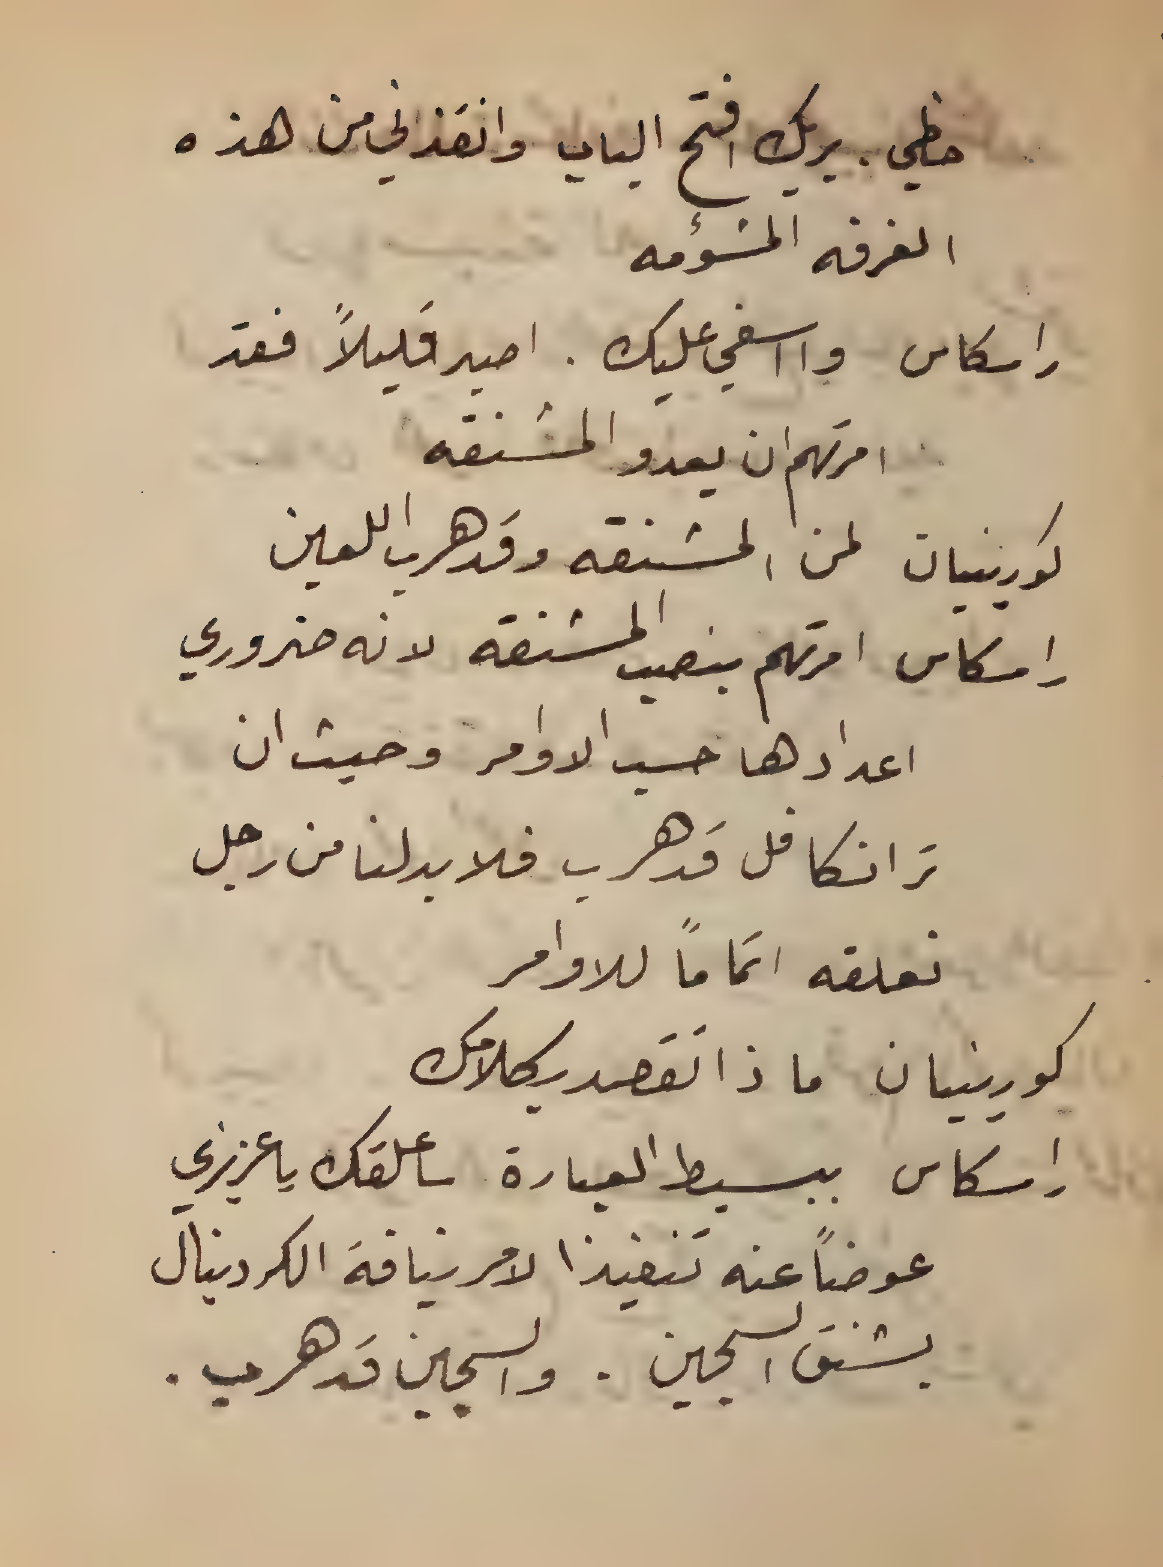 حظي. بربك افتح الباب وانقذني من هذه
الغرفه المشؤمه
راسكاس وااسفي عليك. اصبر قليلاً فقد
امرتهم ان يعدو المشنقه
كورينيان لمن المشنقه وقد هرب اللعين
راسكاس امرتهم بنصب المشنقة لانه ضروري
اعدادها حسب الاوامر وحيث ان
ترانكافل قد هرب فلا بد لنا من رجل
نعلقه اتماماً للاوامر
كورينيان ماذا تقصد بكلامك
راسكاس ببسيط العبارة سأعلقك يا عزيزي
عوضاً عنه تنفيذا لامر نيافة الكردينال
بشنق السجين. والسجين قد هرب.